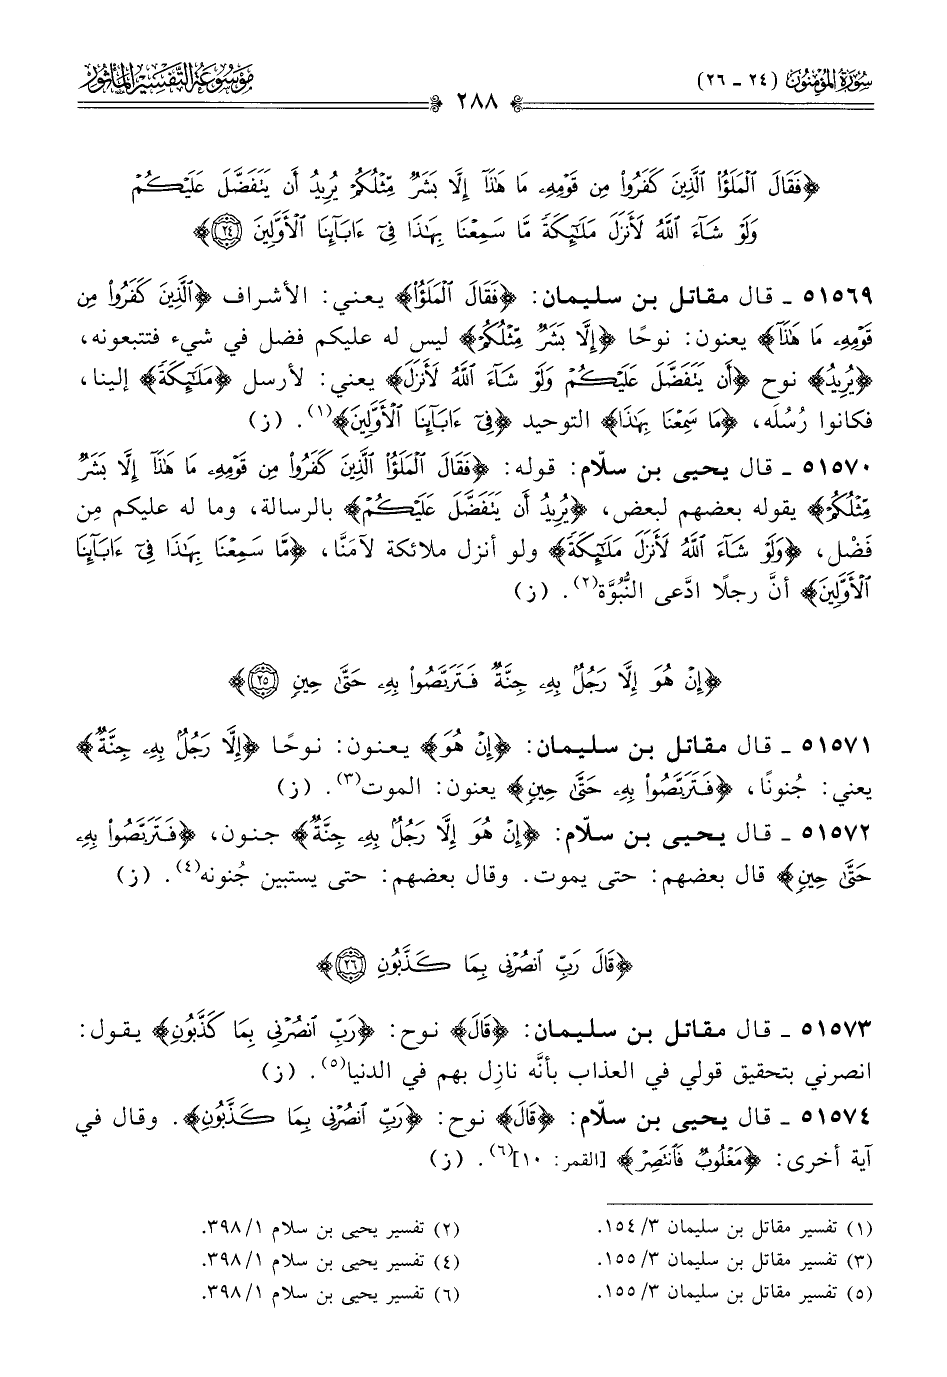 سُورَةُ المُؤْمِنُون (٢٤ - ٢٦)
٢٨٨
مَوْسُوعَةُ التَّفْسِيرِ المَأْثُور
﴿فَقَالَ ٱلْمَلَؤُا۟ ٱلَّذِينَ كَفَرُوا۟ مِن قَوْمِهِۦ مَا هَٰذَآ إِلَّا بَشَرٌ مِّثْلُكُمْ يُرِيدُ أَن يَتَفَضَّلَ عَلَيْكُمْ
وَلَوْ شَآءَ ٱللَّهُ لَأَنزَلَ مَلَٰٓئِكَةً مَّا سَمِعْنَا بِهَٰذَا فِىٓ ءَابَآئِنَا ٱلْأَوَّلِينَ ٢٤﴾
٥١٥٦٩ ـ قال مقاتل بن سليمان: ﴿فَقَالَ ٱلْمَلَؤُا۟﴾ يعني: الأشراف ﴿ٱلَّذِينَ كَفَرُوا۟ مِن
قَوْمِهِۦ مَا هَٰذَآ﴾ يعنون: نوحًا ﴿إِلَّا بَشَرٌ مِّثْلُكُمْ﴾ ليس له عليكم فضل في شيء فتتبعونه،
﴿يُرِيدُ﴾ نوح ﴿أَن يَتَفَضَّلَ عَلَيْكُمْ وَلَوْ شَآءَ ٱللَّهُ لَأَنزَلَ﴾ يعني: لأرسل ﴿مَلَٰٓئِكَةً﴾ إلينا،
فكانوا رُسُلَه، ﴿مَا سَمِعْنَا بِهَٰذَا﴾ التوحيد ﴿فِىٓ ءَابَآئِنَا ٱلْأَوَّلِينَ﴾(١). (ز)
٥١٥٧٠ ـ قال يحيى بن سلّام: قوله: ﴿فَقَالَ ٱلْمَلَؤُا۟ ٱلَّذِينَ كَفَرُوا۟ مِن قَوْمِهِۦ مَا هَٰذَآ إِلَّا بَشَرٌ
مِّثْلُكُمْ﴾ يقوله بعضهم لبعض، ﴿يُرِيدُ أَن يَتَفَضَّلَ عَلَيْكُمْ﴾ بالرسالة، وما له عليكم مِن
فَضْل، ﴿وَلَوْ شَآءَ ٱللَّهُ لَأَنزَلَ مَلَٰٓئِكَةً﴾ ولو أنزل ملائكة لآمَنَّا، ﴿مَّا سَمِعْنَا بِهَٰذَا فِىٓ ءَابَآئِنَا
ٱلْأَوَّلِينَ﴾ أنَّ رجلًا ادَّعى النُّبُوَّة(٢). (ز)
﴿إِنْ هُوَ إِلَّا رَجُلٌۢ بِهِۦ جِنَّةٌ فَتَرَبَّصُوا۟ بِهِۦ حَتَّىٰ حِينٍ ٢٥﴾
٥١٥٧١ ـ قال مقاتل بن سليمان: ﴿إِنْ هُوَ﴾ يعنون: نوحًا ﴿إِلَّا رَجُلٌۢ بِهِۦ جِنَّةٌ﴾
يعني: جُنونًا، ﴿فَتَرَبَّصُوا۟ بِهِۦ حَتَّىٰ حِينٍ﴾ يعنون: الموت(٣). (ز)
٥١٥٧٢ ـ قال يحيى بن سلّام: ﴿إِنْ هُوَ إِلَّا رَجُلٌۢ بِهِۦ جِنَّةٌ﴾ جنون، ﴿فَتَرَبَّصُوا۟ بِهِۦ
حَتَّىٰ حِينٍ﴾ قال بعضهم: حتى يموت. وقال بعضهم: حتى يستبين جُنونه(٤). (ز)
﴿قَالَ رَبِّ ٱنصُرْنِى بِمَا كَذَّبُونِ ٢٦﴾
٥١٥٧٣ ـ قال مقاتل بن سليمان: ﴿قَالَ﴾ نوح: ﴿رَبِّ ٱنصُرْنِى بِمَا كَذَّبُونِ﴾ يقول:
انصرني بتحقيق قولي في العذاب بأنَّه نازِل بهم في الدنيا(٥). (ز)
٥١٥٧٤ ـ قال يحيى بن سلّام: ﴿قَالَ﴾ نوح: ﴿رَبِّ ٱنصُرْنِى بِمَا كَذَّبُونِ﴾. وقال في
آية أخرى: ﴿مَغْلُوبٌ فَٱنتَصِرْ﴾ [القمر: ١٠](٦). (ز)
(١) تفسير مقاتل بن سليمان ٣/ ١٥٤.
(٢) تفسير يحيى بن سلام ١/ ٣٩٨.
(٣) تفسير مقاتل بن سليمان ٣/ ١٥٥.
(٤) تفسير يحيى بن سلام ١/ ٣٩٨.
(٥) تفسير مقاتل بن سليمان ٣/ ١٥٥.
(٦) تفسير يحيى بن سلام ١/ ٣٩٨.